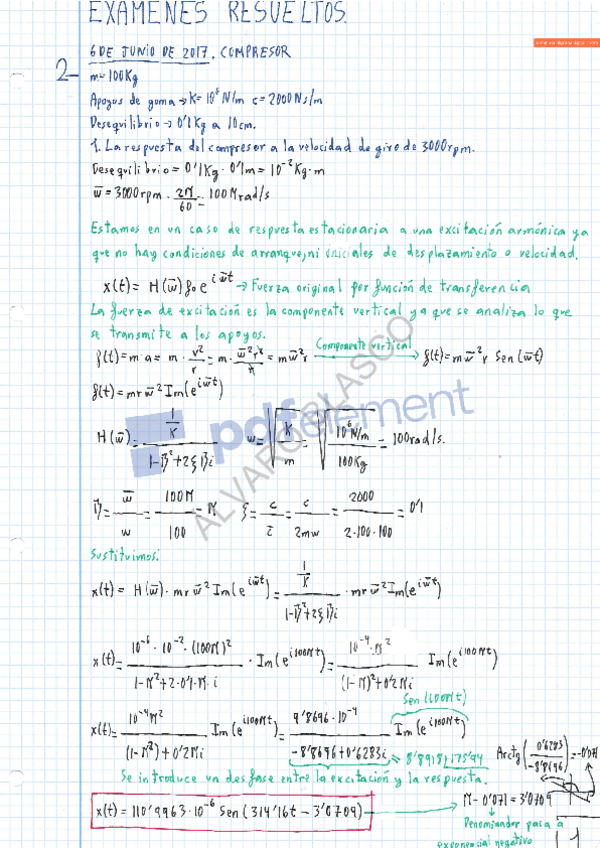 EXAMENES RESUELTOS.
2-
6 DE JUNIO DE 2017, COMPRESOR
m=100Kg
Apoyos de goma → K=10⁶ N/m c=2000Ns/m
Desequilibrio → 0'1Kg a 10cm.
1. La respuesta del compresor a la velocidad de giro de 3000rpm.
Desequilibrio = 0'1Kg · 0'1m = 10⁻² Kg·m
w̄ = 3000rpm · 2π/60 = 100π rad/s
Estamos en un caso de respuesta estacionaria a una excitación armónica ya
que no hay condiciones de arranque, ni iniciales de desplazamiento o velocidad.
x(t) = H(w̄) f₀ e^{iw̄t} → Fuerza original por función de transferencia
La fuerza de excitación es la componente vertical ya que se analiza lo que
se transmite a los apoyos.
f(t) = m·a = m · v²/r = m · w̄²r²/r = mw̄²r Componente vertical → f(t) = mw̄²r Sen(w̄t)
f(t) = mrw̄² Im(e^{iw̄t})
H(w̄) = (1/K)/(1-β²+2ξβi) w = √(K/m) = √(10⁶N/m / 100Kg) = 100rad/s.
β = w̄/w = 100π/100 = π ξ = c/c̄ = c/2mw = 2000/2·100·100 = 0'1
Sustituimos:
x(t) = H(w̄) · mrw̄² Im(e^{iw̄t}) = (1/K)/(1-β²+2ξβi) · mrw̄² Im(e^{iw̄t})
x(t) = 10⁻⁶·10⁻²·(100π)²/(1-π²+2·0'1·π·i) · Im(e^{i100πt}) = 10⁻⁴·π²/((1-π)²+0'2πi) Im(e^{i100πt})
Sen(100πt)
x(t) = 10⁻⁴π²/((1-π²)+0'2πi) Im(e^{i100πt}) = 9'8696·10⁻⁴/(-8'8696+0'6283i) Im(e^{i100πt})
Arctg(0'6283/-8'8696) = -0'071
Se introduce un desfase entre la excitación y la respuesta.
π - 0'071 = 3'0709
x(t) = 110'9963·10⁻⁶ Sen(314'16t - 3'0709)
Denominador pasa a
exponencial negativo
ÁLVARO BLASCO
pdfelement